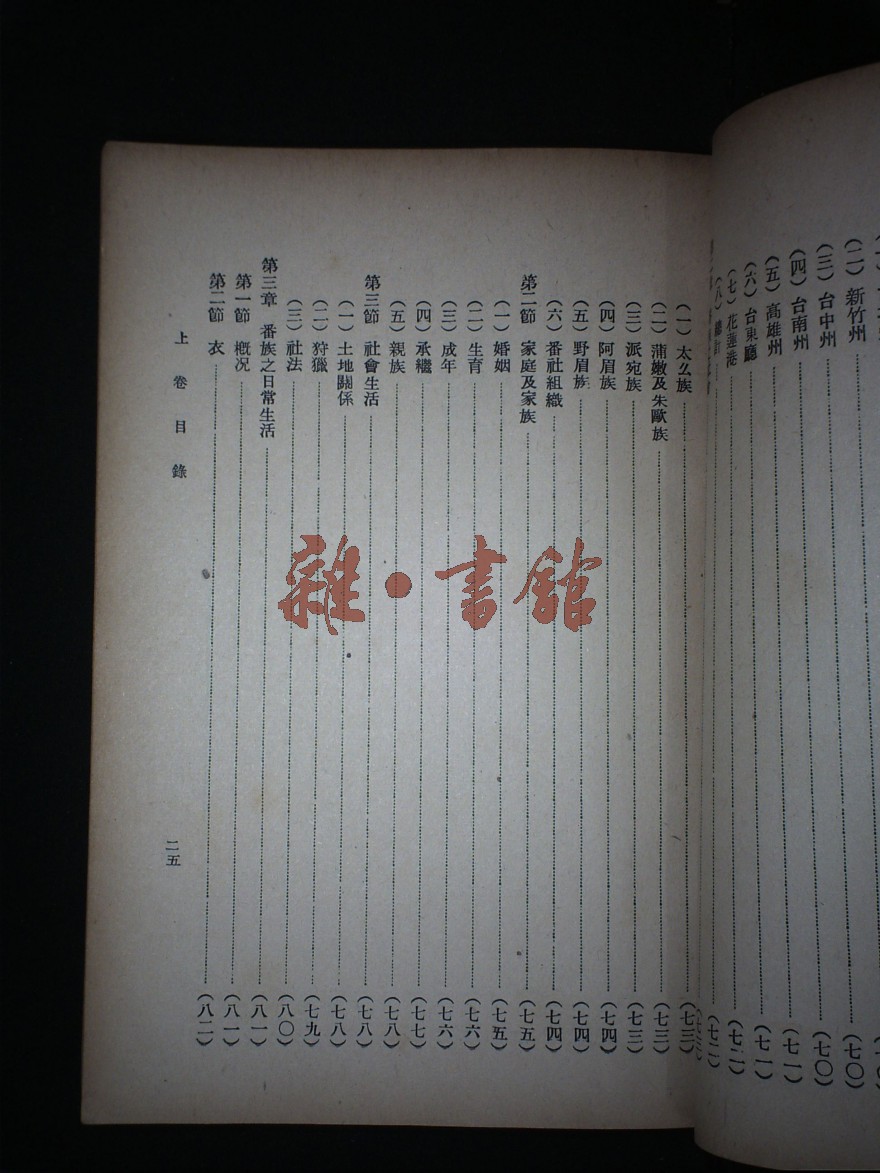 （二）新竹州（七〇）
（三）台中州（七〇）
（四）台南州（七一）
（五）高雄州（七一）
（六）台東廳
（七）花蓮港
（一）太么族（七三）
（二）蒲嫩及朱歐族（七三）
（三）派宛族（七三）
（四）阿眉族（七四）
（五）野眉族（七四）
（六）番社組織（七四）
第二節 家庭及家族（七五）
（一）婚姻（七五）
（二）生育（七六）
（三）成年（七六）
（四）承繼（七七）
（五）親族（七八）
第三節 社會生活（七八）
（一）土地關係（七八）
（二）狩獵（七九）
（三）社法（八〇）
第三章 番族之日常生活（八一）
第一節 概况（八一）
第二節 衣（八二）
上卷目錄
二五
雜·書館